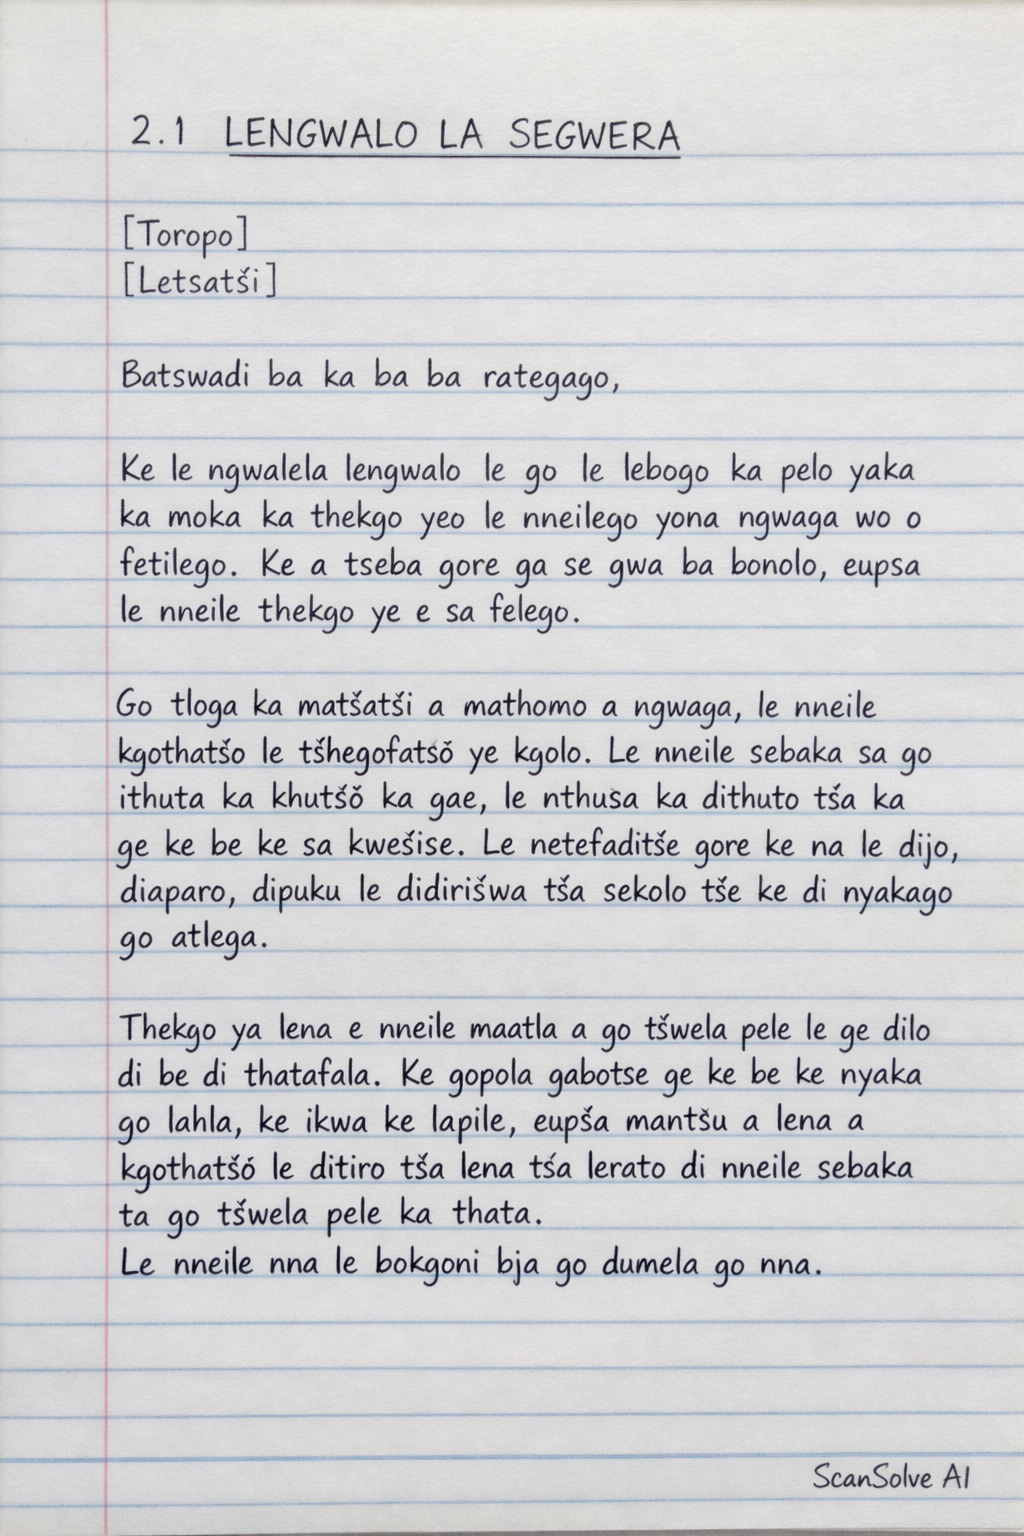 2.1 LENGWALO LA SEGWERA
[Toropo]
[Letsatši]
Batswadi ba ka ba ba rategago,
Ke le ngwalela lengwalo le go le lebogo ka pelo yaka
ka moka ka thekgo yeo le nneilego yona ngwaga wo o
fetilego. Ke a tseba gore ga se gwa ba bonolo, eupsa
le nneile thekgo ye e sa felego.
Go tloga ka matšatši a mathomo a ngwaga, le nneile
kgothatšo le tšhegofatsŏ ye kgolo. Le nneile sebaka sa go
ithuta ka khutšŏ ka gae, le nthusa ka dithuto tša ka
ge ke be ke sa kwešise. Le netefaditše gore ke na le dijo,
diaparo, dipuku le didirišwa tša sekolo tše ke di nyakago
go atlega.
Thekgo ya lena e nneile maatla a go tšwela pele le ge dilo
di be di thatafala. Ke gopola gabotse ge ke be ke nyaka
go lahla, ke ikwa ke lapile, eupša mantšu a lena a
kgothatšó le ditiro tša lena tśa lerato di nneile sebaka
ta go tšwela pele ka thata.
Le nneile nna le bokgoni bja go dumela go nna.
ScanSolve AI